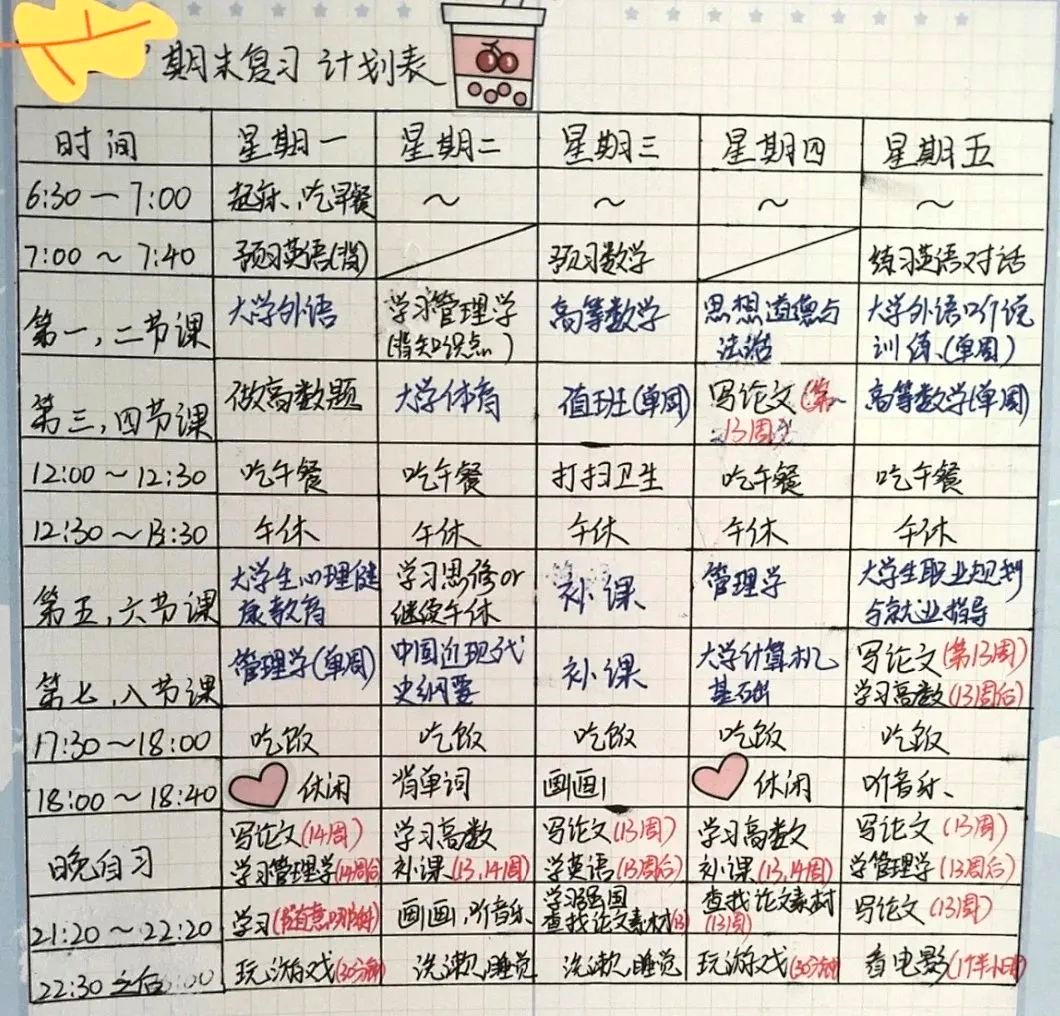 期末复习计划表
时间 星期一 星期二 星期三 星期四 星期五
6:30—7:00 起床、吃早餐 ~ ~ ~ ~
7:00~7:40 预习英语(背) 预习数学 练习英语对话
第一,二节课 大学外语 学习管理学 高等数学 思想道德与 大学外语口听说
(背知识点) 法治 训练、(单周)
第三,四节课 做高数题 大学体育 值班(单周) 写论文(第 高等数学(单周)
13周)
12:00~12:30 吃午餐 吃午餐 打扫卫生 吃午餐 吃午餐
12:30~13:30 午休 午休 午休 午休 午休
第五,六节课 大学生心理健 学习思修or 补课 管理学 大学生职业规划
康教育 继续午休 与就业指导
第七,八节课 管理学(单周) 中国近现代 补课 大学计算机 写论文(第13周)
史纲要 基础 学习高数(13周后)
17:30~18:00 吃饭 吃饭 吃饭 吃饭 吃饭
18:00~18:40 休闲 背单词 画画 休闲 听音乐、
晚自习 写论文(14周) 学习高数 写论文(13周) 学习高数 写论文(13周)
学习管理学(14周后) 补课(13,14周) 学英语(13周后) 补课(13,14周) 学管理学(13周后)
21:20~22:20 学习 画画,听音乐 学习强国 查找论文素材 写论文(13周)
查找论文素材(13) (13周)
22:30之后 玩游戏(30分钟) 洗漱,睡觉 洗漱,睡觉 玩游戏(30分钟) 看电影(1个半小时)